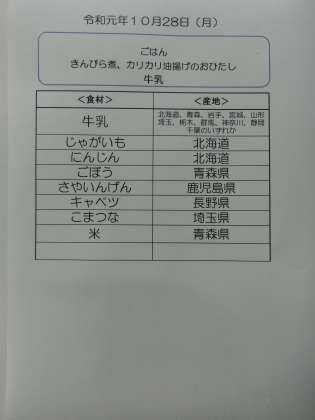 令和元年10月28日（月）
ごはん
きんぴら煮、カリカリ油揚げのおひたし
牛乳
＜食材＞ ＜産地＞
牛乳 北海道、青森、岩手、宮城、山形
埼玉、栃木、群馬、神奈川、静岡
千葉のいずれか
じゃがいも 北海道
にんじん 北海道
ごぼう 青森県
さやいんげん 鹿児島県
キャベツ 長野県
こまつな 埼玉県
米 青森県